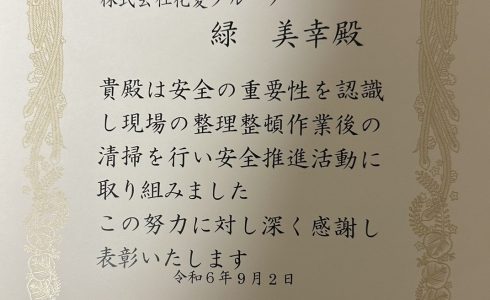 株式会社花夏グループ
緑　美幸殿
貴殿は安全の重要性を認識
し現場の整理整頓作業後の
清掃を行い安全推進活動に
取り組みました
この努力に対し深く感謝し
表彰いたします
令和６年９月２日